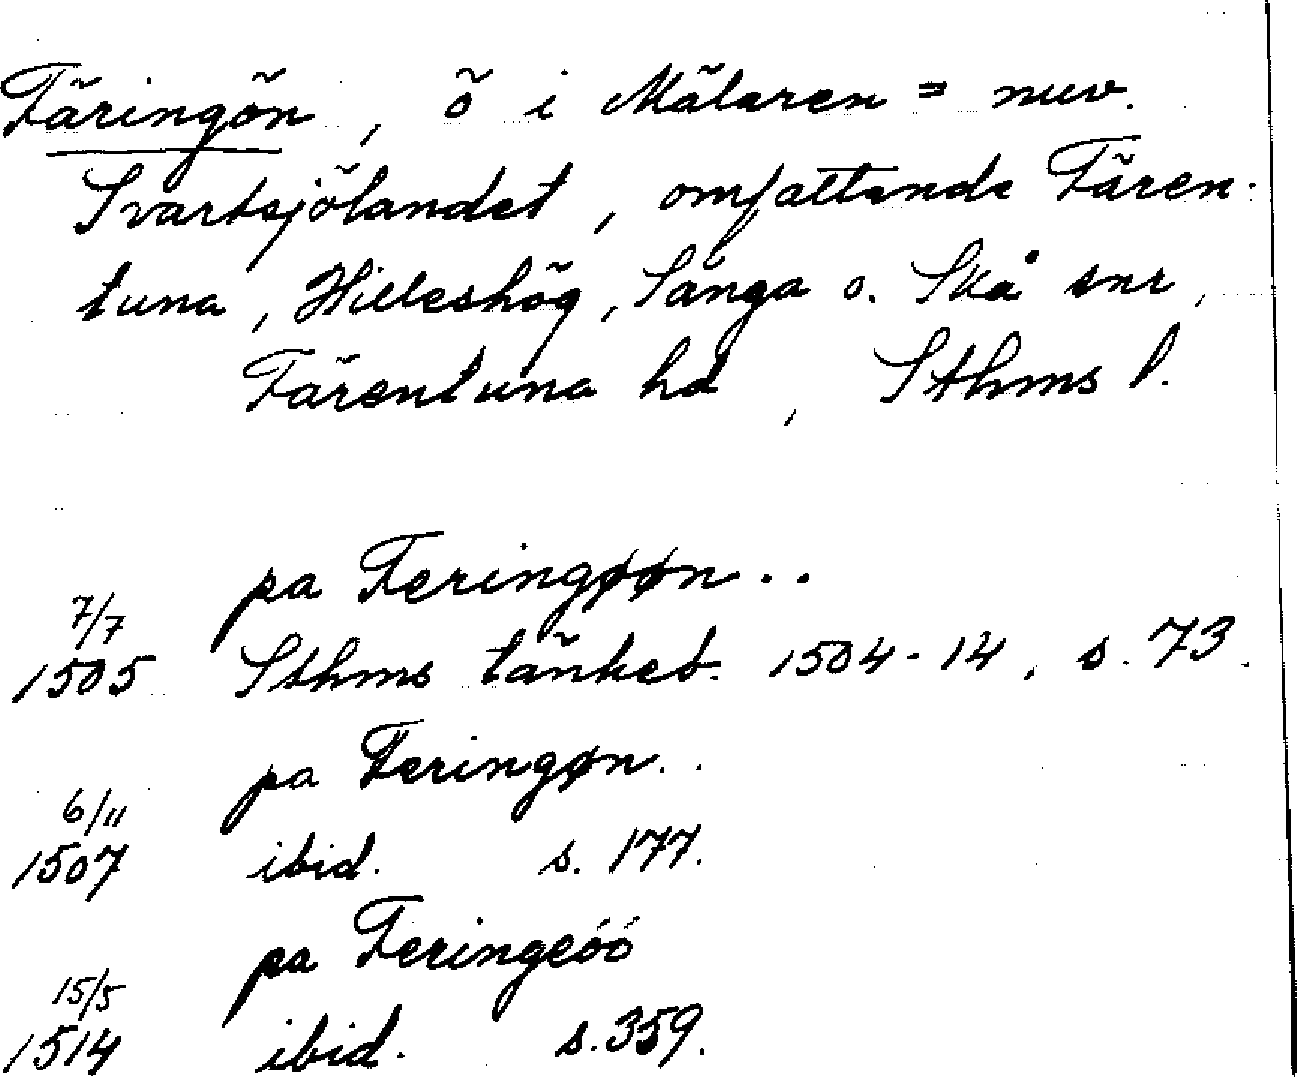 Färingön, ö i Mälaren = nuv.
Svartsjölandet, omfattande Fären-
tuna, Hilleshög, Sånga o. Skå snr,
Färentuna hd, Sthms l.
pa Feringøøn..
7/7
1505 Sthms tänkeb. 1504-14, s. 73.
pa Feringøn..
6/11
1507 ibid. s. 177.
pa Feringeóó
15/5
1514 ibid. s. 359.